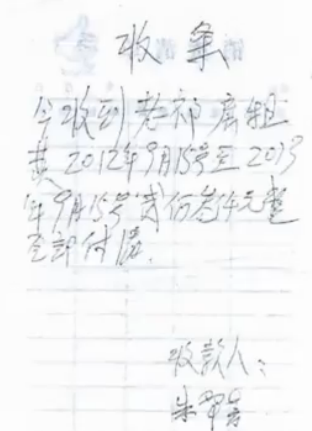 收条
今收到老祁房租
2012年9月15号至2013
年9月15号贰仟叁仟元整
全部付清.
收款人:
朱